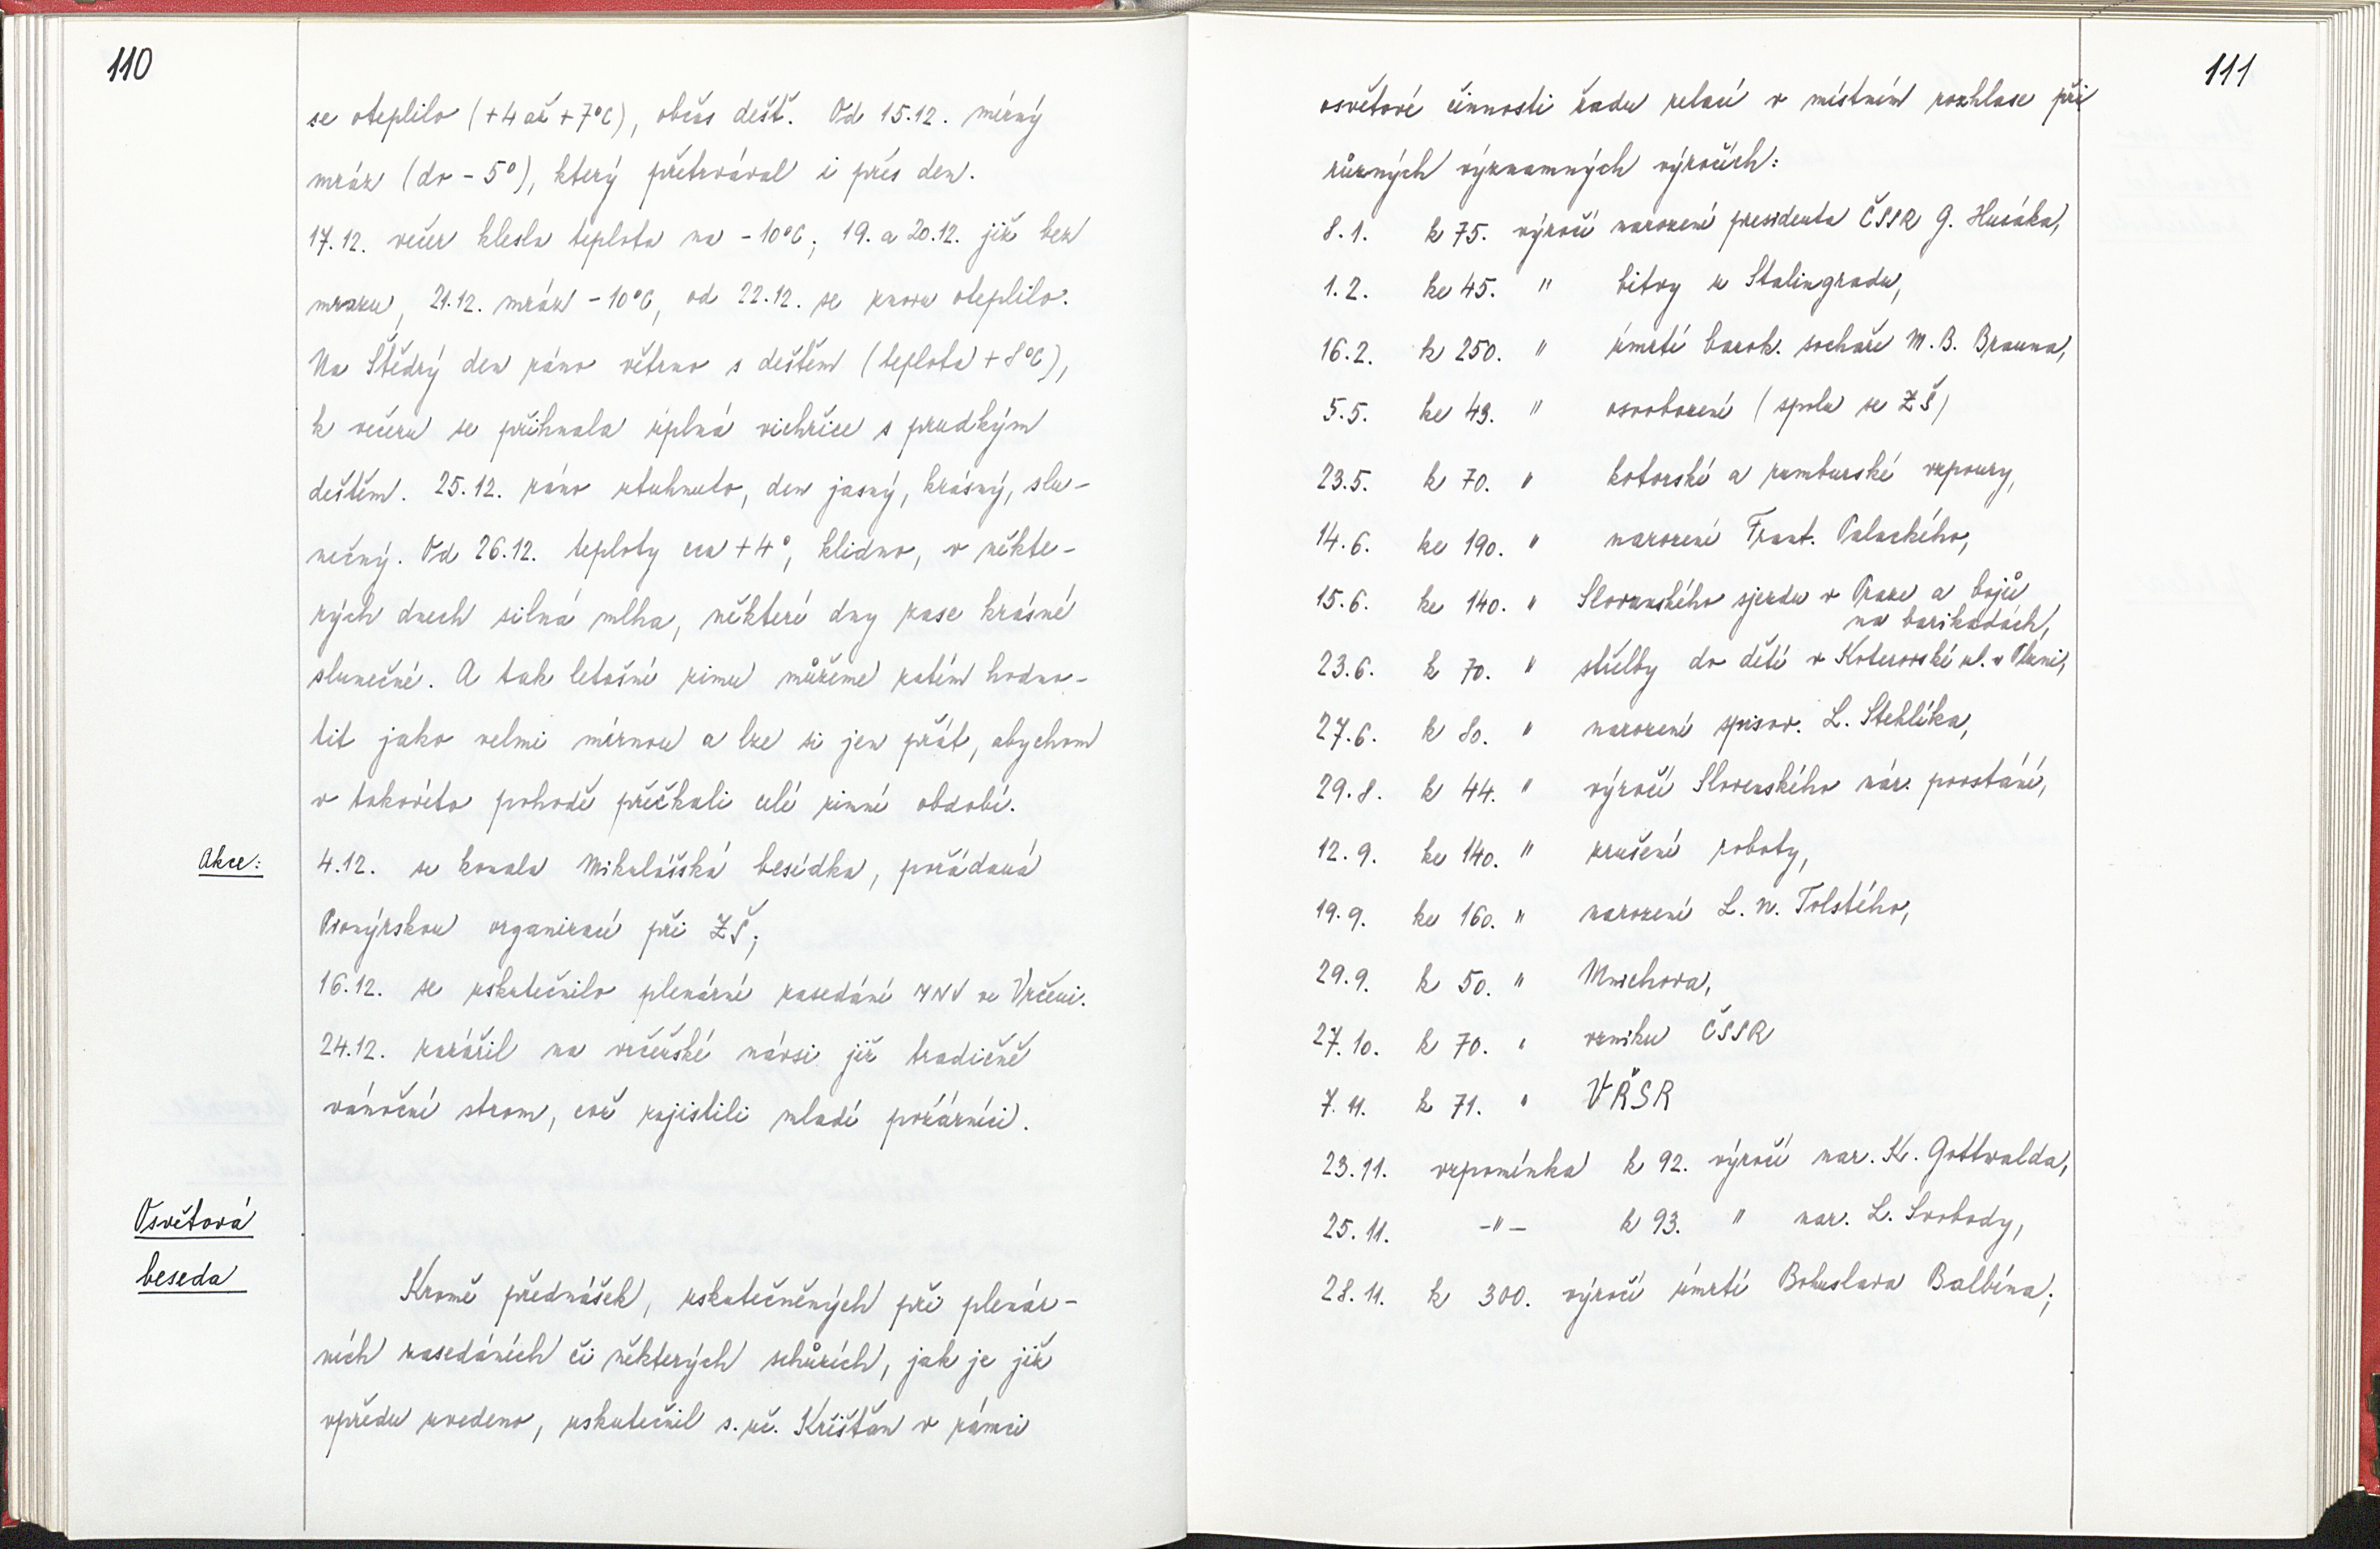 110
se oteplilo (+4 až +7°C), občas déšť. Od 15.12. mírný
mráz (do -5°), který přetrvával i přes den.
17.12. večer klesla teplota na -10°C, 19. a 20.12. již bez
mrazu, 21.12. mráz -10°C, od 22.12. se znovu oteplilo.
Na Štědrý den ráno větrno s deštěm (teplota +8°C),
k večeru se přihnala úplná vichřice s prudkým
deštěm. 25.12. ráno utuhnuto, den jasný, krásný, slu-
nečný. Od 26.12. teploty cca +4°, klidno, v někte-
rých dnech silná mlha, některé dny zase krásné
slunečné. A tak letošní zimu můžeme zatím hodno-
tit jako velmi mírnou a lze si jen přát, abychom
v takovéto pohodě přečkali celé zimní období.
Akce:
4.12. se konala Mikulášská besídka, pořádaná
Pionýrskou organizací při ZŠ;
16.12. se uskutečnilo plenární zasedání MNV ve Vrčeni.
24.12. zazářil na vrčeňské návsi již tradičně
vánoční strom, což zajistili mladí požárníci.
Osvětová
beseda
Kromě přednášek, uskutečněných při plenár-
ních zasedáních či některých schůzích, jak je již
vpředu uvedeno, uskutečnil s. uč. Krištan v rámci
111
osvětové činnosti řadu relací v místním rozhlase při
různých významných výročích:
8.1. k 75. výročí narození presidenta ČSSR G. Husáka,
1.2. ke 45. " bitvy u Stalingradu,
16.2. k 250. " úmrtí barok. sochaře M. B. Brauna,
5.5. ke 43. " osvobození (spolu se ZŠ)
23.5. k 70. " kotorské a rumburské vzpoury,
14.6. ke 190. " narození Frant. Palackého,
15.6. ke 140. " Slovanského sjezdu v Praze a bojů
na barikádách,
23.6. k 70. " střelby do dětí v Koterovské ul. v Plzni,
27.6. k 80. " narození spisov. L. Stehlíka,
29.8. k 44. " výročí Slovenského nár. povstání,
12.9. ke 140. " zrušení roboty,
19.9. ke 160. " narození L. N. Tolstého,
29.9. k 50. " Mnichova,
27.10. k 70. " vzniku ČSSR
7.11. k 71. " VŘSR
23.11. vzpomínka k 92. výročí nar. K. Gottwalda,
25.11. -"- k 93. " nar. L. Svobody,
28.11. k 300. výročí úmrtí Bohuslava Balbína;